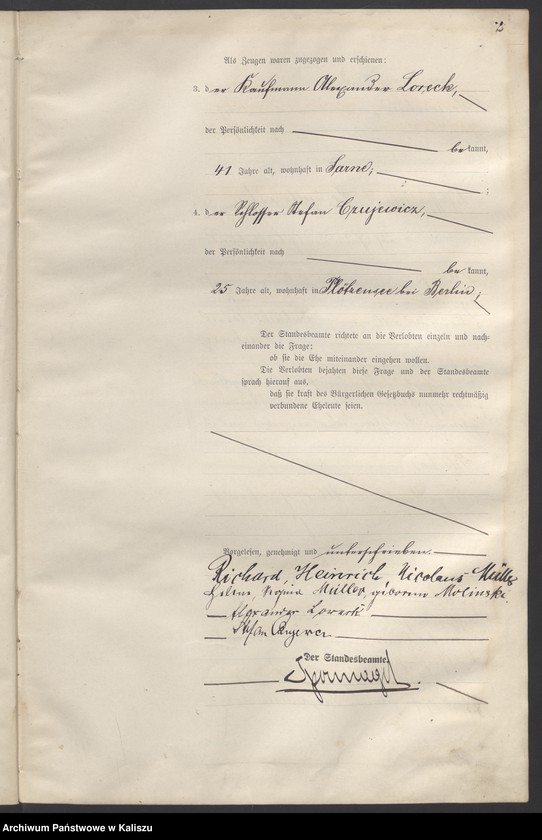 2
Als Zeugen waren zugezogen und erschienen:
3. der Kaufmann Alexander Loreck,
der Persönlichkeit nach
bekannt,
41 Jahre alt, wohnhaft in Sarne;
;
4. der Schlosser Stefan Czujewicz,
der Persönlichkeit nach
bekannt,
25 Jahre alt, wohnhaft in Plötzensee bei Berlin;
Der Standesbeamte richtete an die Verlobten einzeln und nach-
einander die Frage:
ob sie die Ehe miteinander eingehen wollen.
Die Verlobten bejahten diese Frage und der Standesbeamte
sprach hierauf aus,
daß sie kraft des Bürgerlichen Gesetzbuchs nunmehr rechtmäßig
verbundene Eheleute seien.
Vorgelesen, genehmigt und unterschrieben.
Richard, Heinrich, Nicolaus Müller
Helene, Regina Müller, geborene Molinski.
Alexander Loreck
Stefan
Der Standesbeamte.
Archiwum Państwowe w Kaliszu